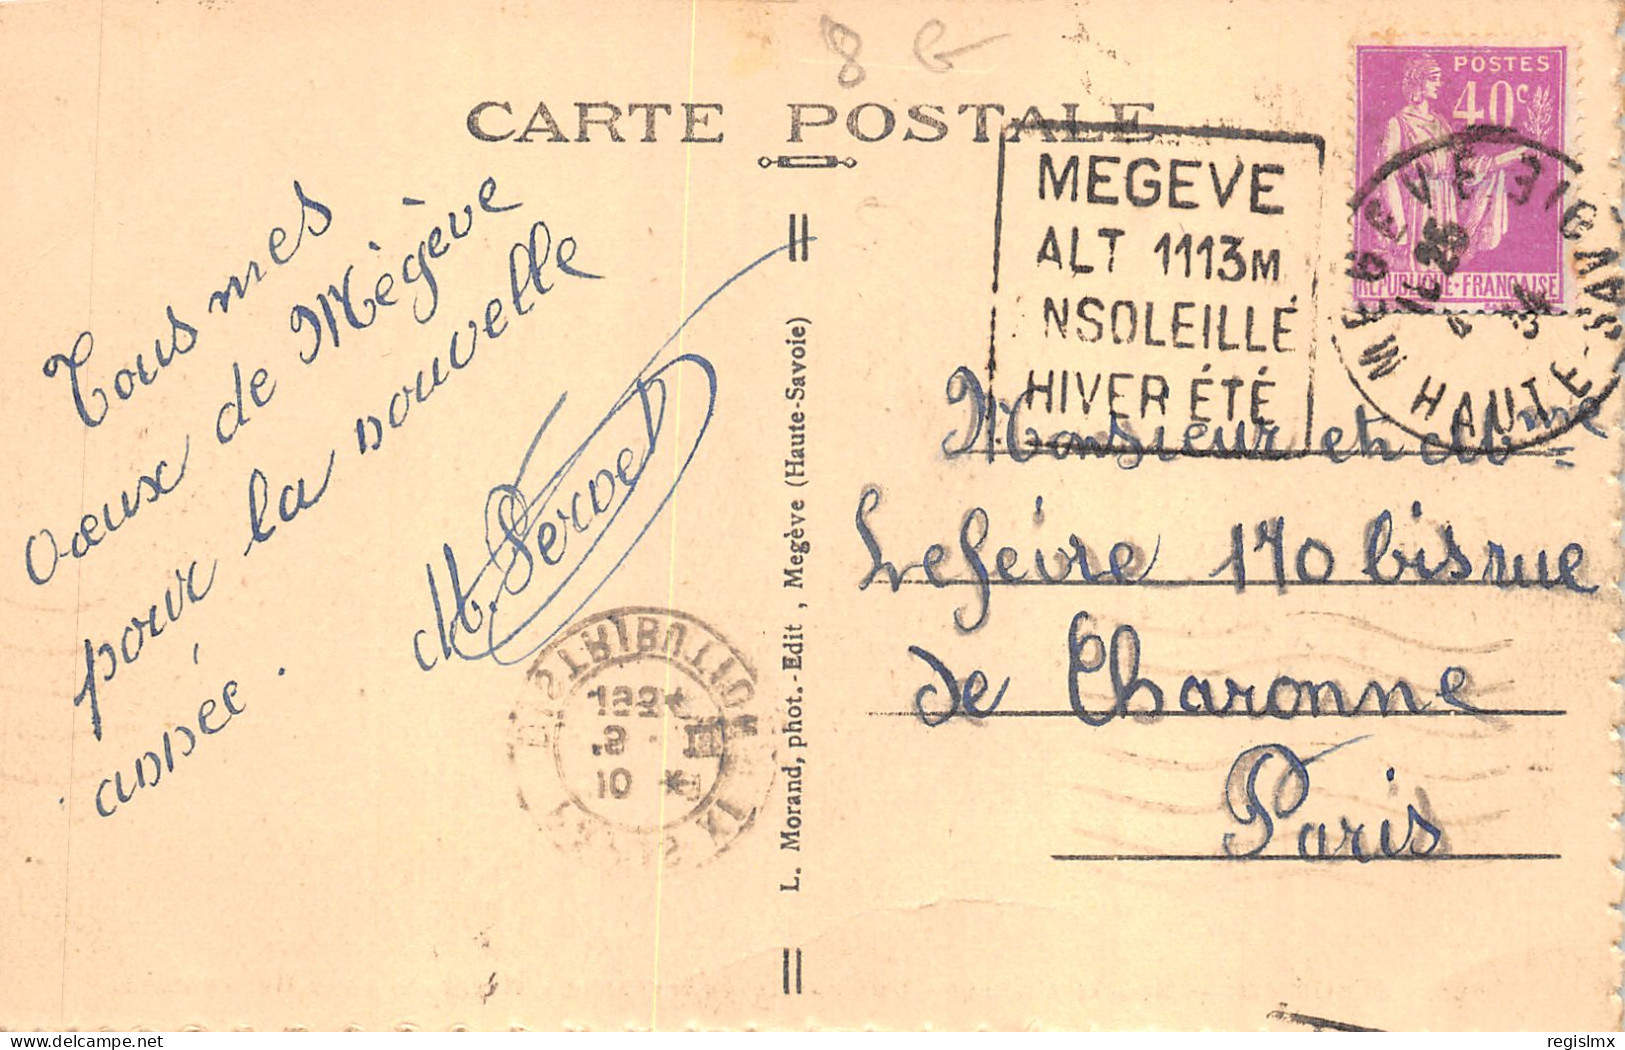 8 G
CARTE POSTALE
POSTES
40c
REPUBLIQUE·FRANÇAISE
MEGEVE
ALT 1113M
NSOLEILLÉ
HIVER ÉTÉ
MEGEVE
HAUTE-SAVOIE
Tous mes
vœux de Mégève
pour la nouvelle
année.
M. Servet
Monsieur et Mme
Lefèvre 170 bis rue
de Charonne
Paris
L. Morand, phot.-Edit, Megève (Haute-Savoie)
DISTRIBUTION
regislmx
delcampe.net